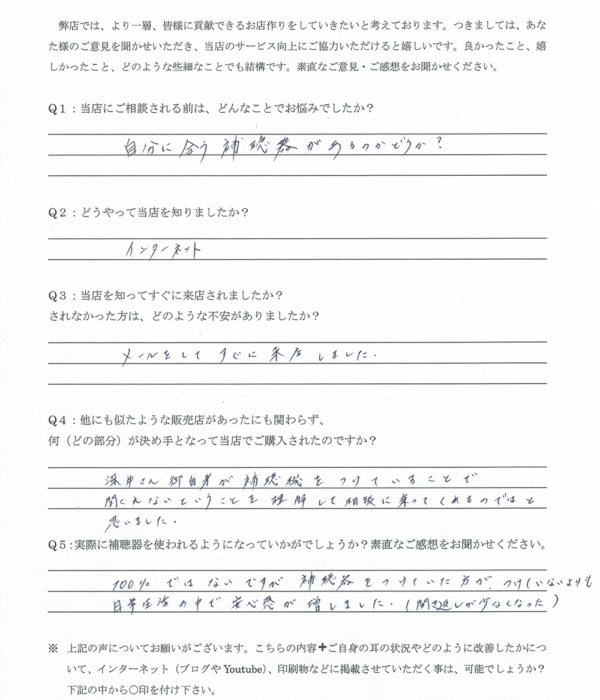 弊店では、より一層、皆様に貢献できるお店作りをしていきたいと考えております。つきましては、あな
た様のご意見を聞かせいただき、当店のサービス向上にご協力いただけると嬉しいです。良かったこと、嬉
しかったこと、どのような些細なことでも結構です。素直なご意見・ご感想をお聞かせください。
Q1：当店にご相談される前は、どんなことでお悩みでしたか？
自分に合う補聴器があるのかどうか？
Q2：どうやって当店を知りましたか？
インターネット
Q3：当店を知ってすぐに来店されましたか？
されなかった方は、どのような不安がありましたか？
メールをしてすぐに来店しました.
Q4：他にも似たような販売店があったにも関わらず、
何（どの部分）が決め手となって当店でご購入されたのですか？
さん御自身が補聴機をつけていることで
聞こえないということを理解して相談に乗ってくれるのではと
思いました.
Q5:実際に補聴器を使われるようになっていかがでしょうか？素直なご感想をお聞かせください。
100%ではないですが補聴器をつけていた方がつけていないよりも
日常生活の中で安心感が増しました.(聞き返しが少なくなった)
※ 上記の声についてお願いがございます。こちらの内容+ご自身の耳の状況やどのように改善したかにつ
いて、インターネット（ブログや Youtube）、印刷物などに掲載させていただく事は、可能でしょうか？
下記の中から〇印を付け下さい。